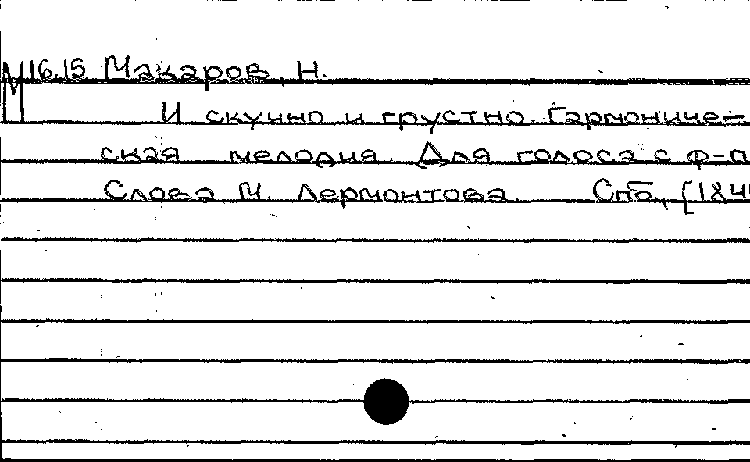 М16.15 Макаров, Н.
И скучно и грустно. Гармониче-
ская мелодия. Для голоса с ф-п
Слова М. Лермонтова. Спб., [184